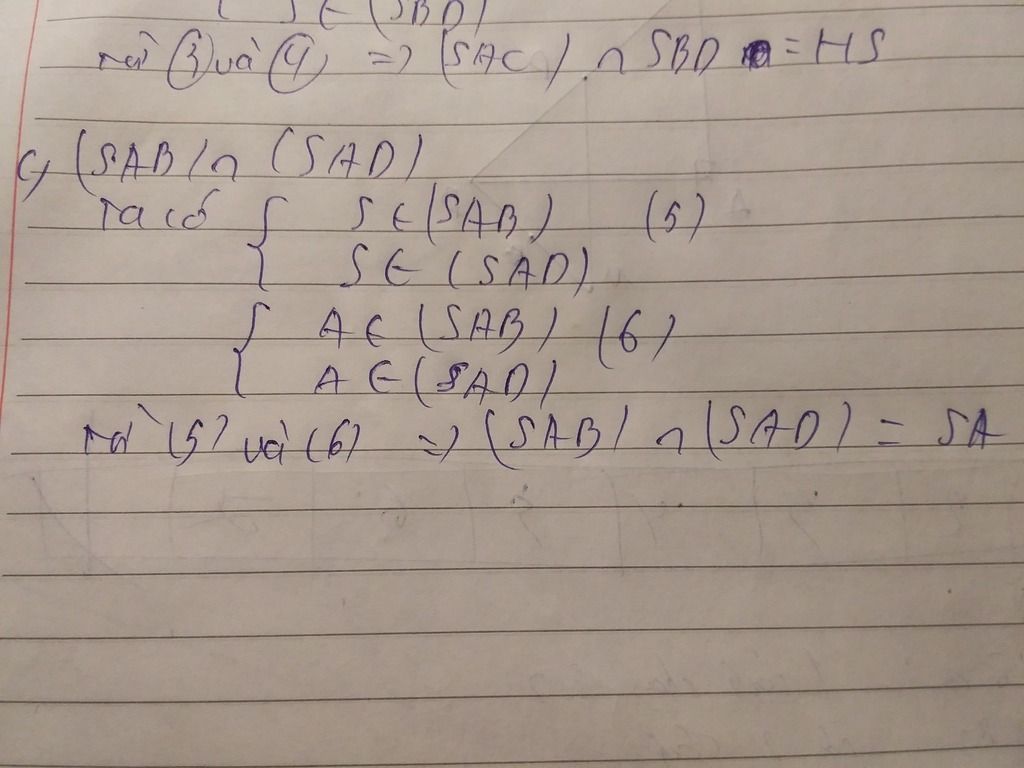 S ∈ (SBD)
từ (3) và (4) => (SAC) ∩ SBD = HS
c) (SAB) ∩ (SAD)
Ta có { S ∈ (SAB) (5)
{ S ∈ (SAD)
{ A ∈ (SAB) (6)
{ A ∈ (SAD)
từ (5) và (6) => (SAB) ∩ (SAD) = SA